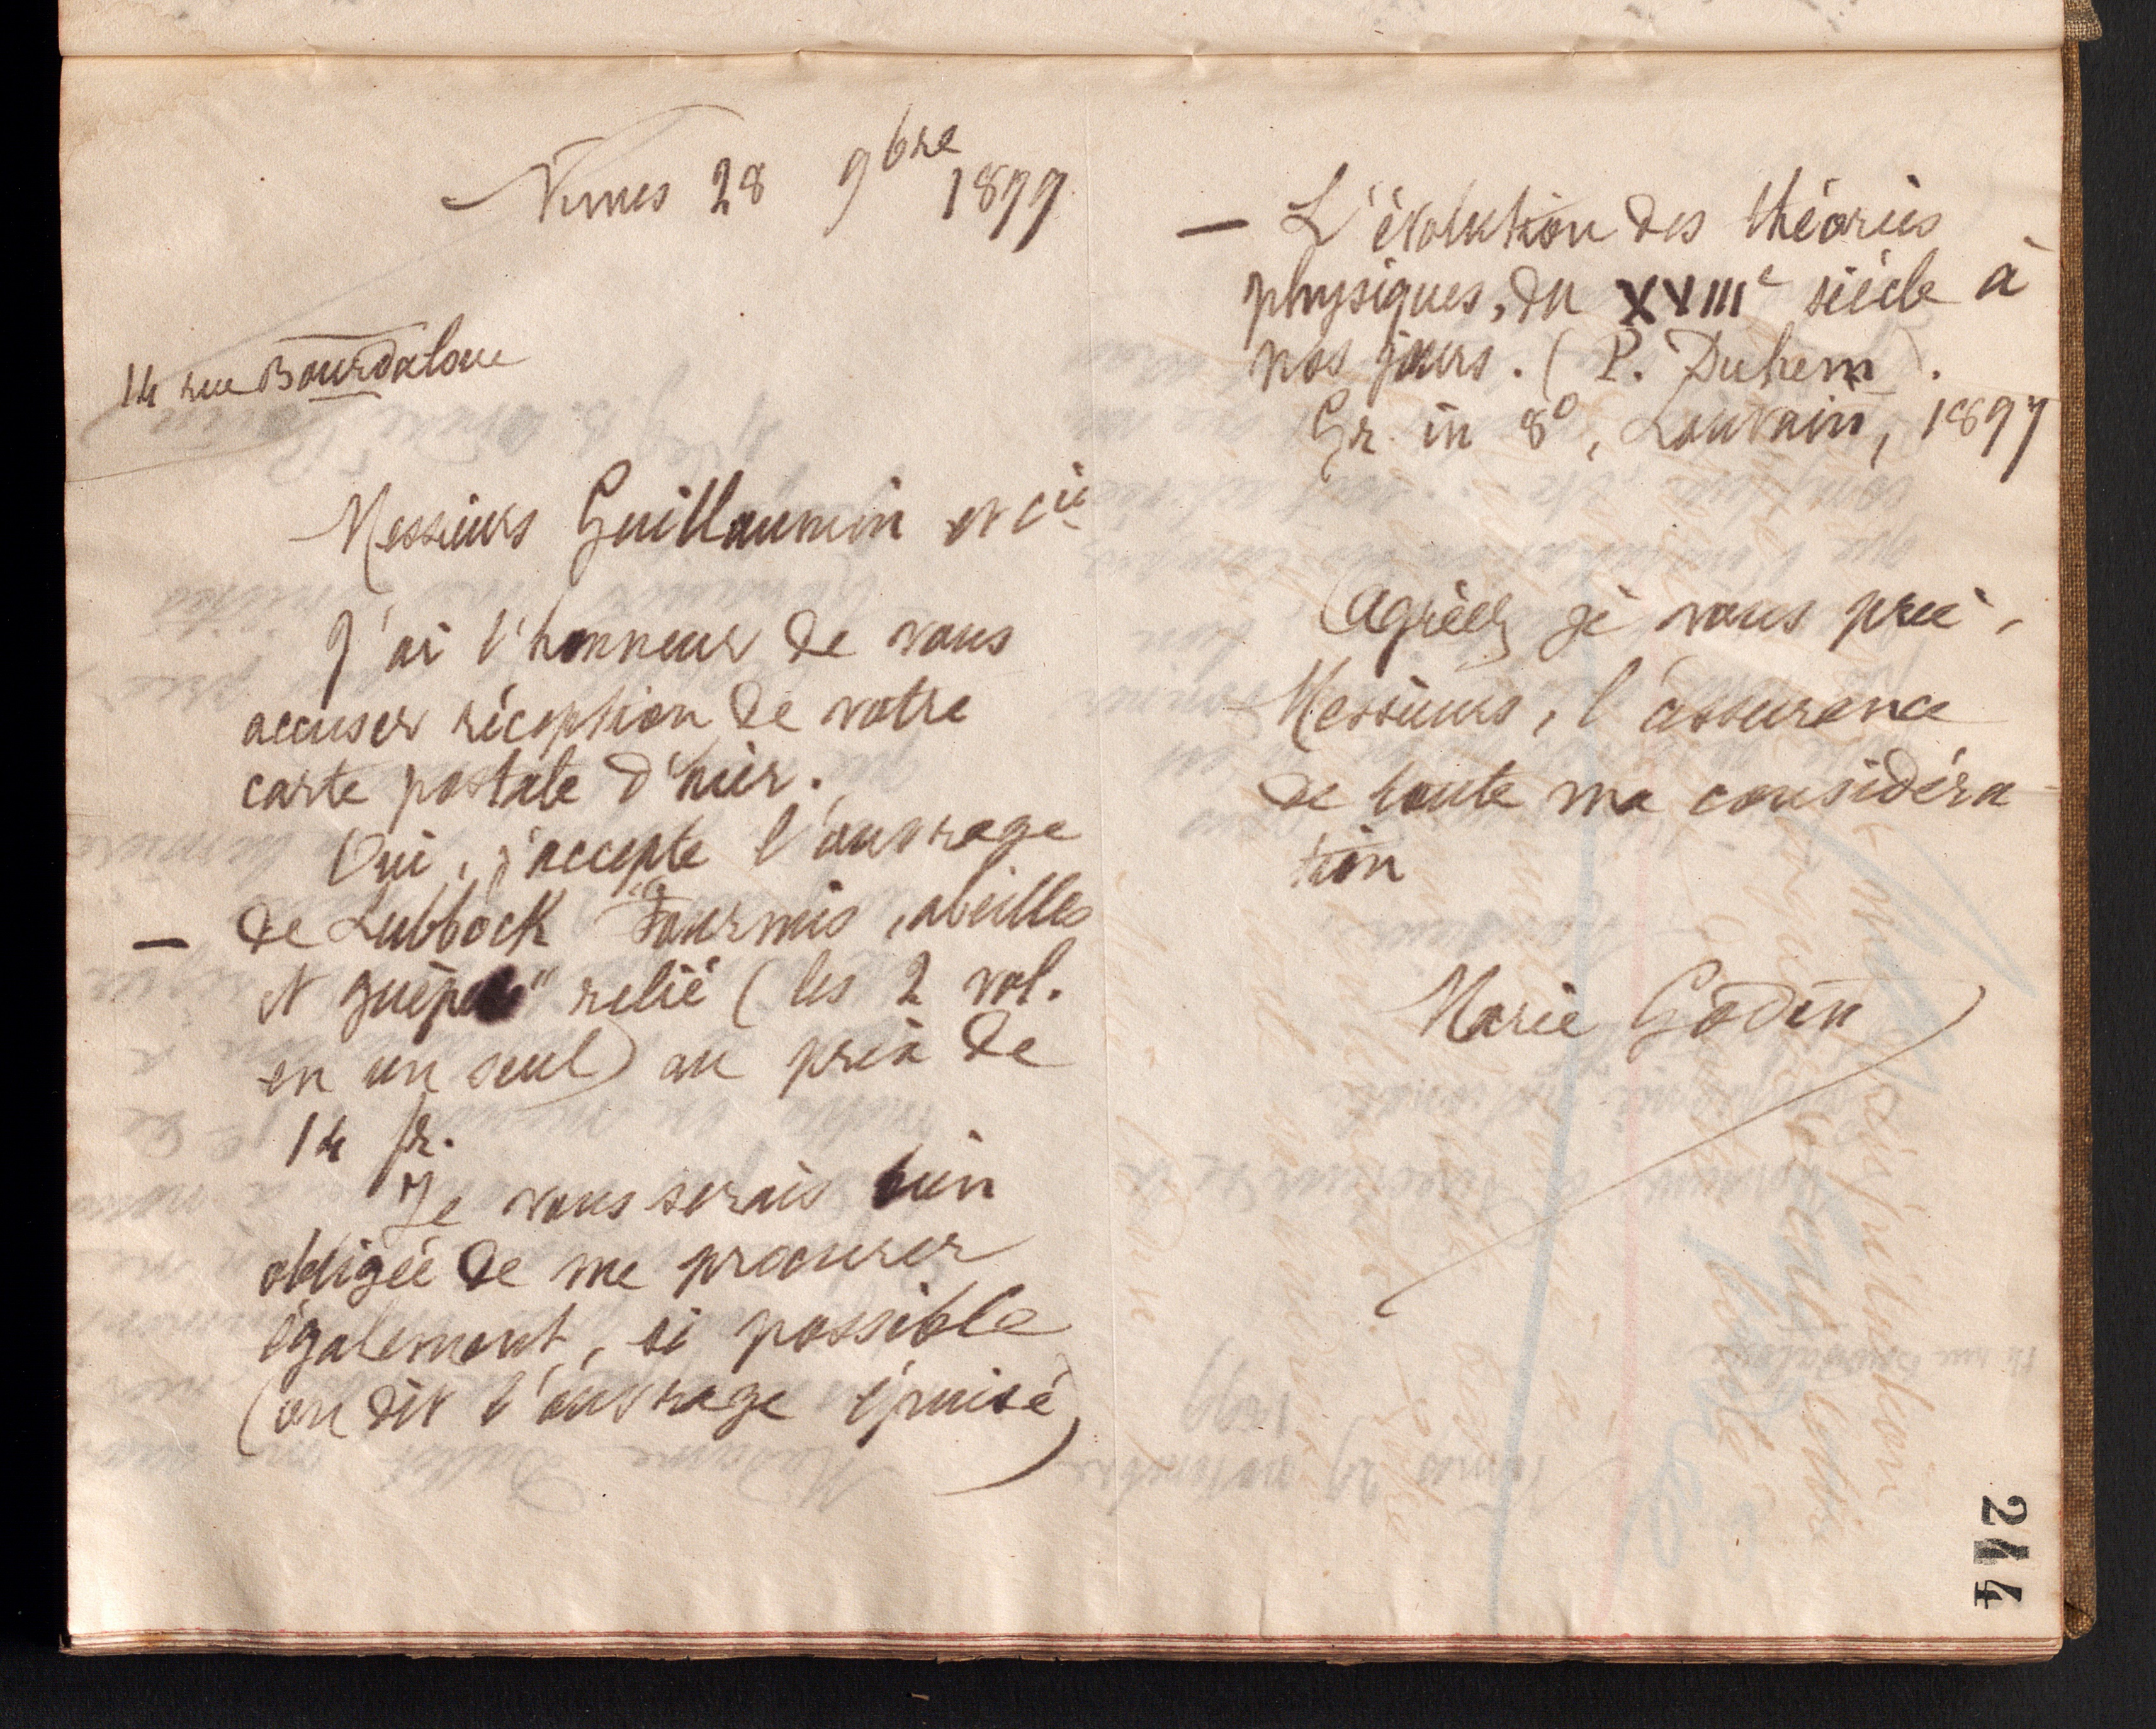 Nîmes 28 9bre 1899
14 rue Bourdaloue
Messieurs Guillaumin et Cie
J'ai l'honneur de vous
accuser réception de votre
carte postale d'hier.
Oui, j'accepte l'ouvrage
— de Lubbock "Fourmis, abeilles
et guêpes" relié (les 2 vol.
en un seul) au prix de
14 fr.
Je vous serais bien
obligée de me procurer
également, si possible
(on dit l'ouvrage épuisé)
— L'évolution des théories
physiques, du XVIIIe siècle à
nos jours. (P. Duhem).
Gr. in 8°, Louvain, 1897
Agréez je vous prie,
Messieurs, l'assurance
de toute ma considéra
tion
Marie Godin
244